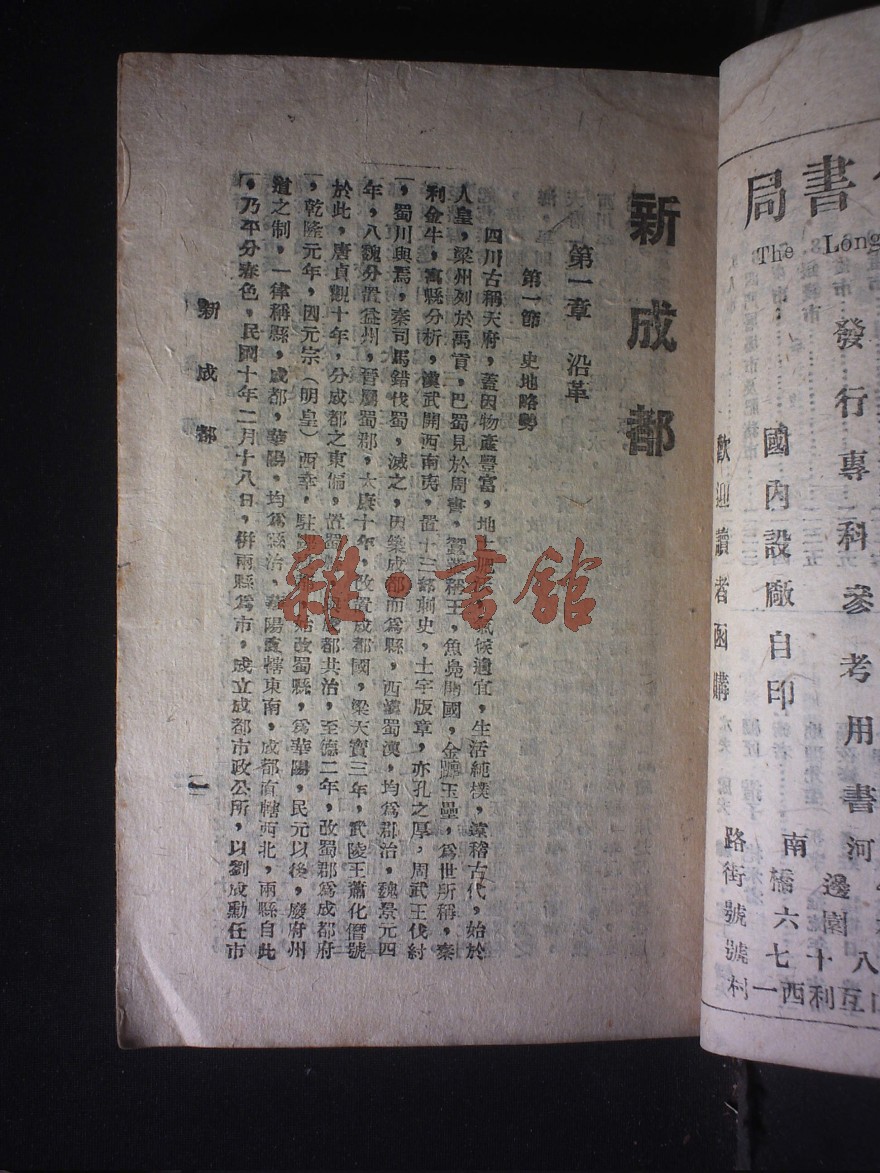 新成都
第一章 沿革
第一節 史地略勢
四川古稱天府，蓋因物產豐富，地土肥 氣候適宜，生活純樸，遠稽古代，始於
人皇，梁州列於禹貢，巴蜀見於周書，蠶叢稱王，魚鳧開國，金 玉壘，爲世所稱，秦
利金牛，富縣分析，漢武開西南夷，置十三部刺史，土宇版章，亦孔之厚，周武王伐紂
，蜀川與焉，秦司馬錯伐蜀，滅之，因築成都而爲縣，西漢蜀漢，均爲郡治，魏景元四
年，入魏分置益州，晉屬蜀郡，太康十年，改置成都國，梁天寶三年，武陵王蕭化僭號
於此，唐貞觀十年，分成都之東偏，置蜀 與成都共治，至德二年，改蜀郡爲成都府
，乾隆元年，因元宗（明皇）西幸，駐蹕 都，始改蜀縣，爲華陽，民元以後，廢府州
道之制，一律稱縣，成都，華陽，均爲縣治，華陽直轄東南，成都直轄西北，兩縣自此
，乃平分春色，民國十年二月十八日，併兩縣爲市，成立成都市政公所，以劉成勳任市
新成都
一
雜·書館
書局
The Long
發行專科參考用書
國內設廠自印
歡迎讀者函購
河
南
邊
橋
園
路街號號村
六七一
十西
八
互利